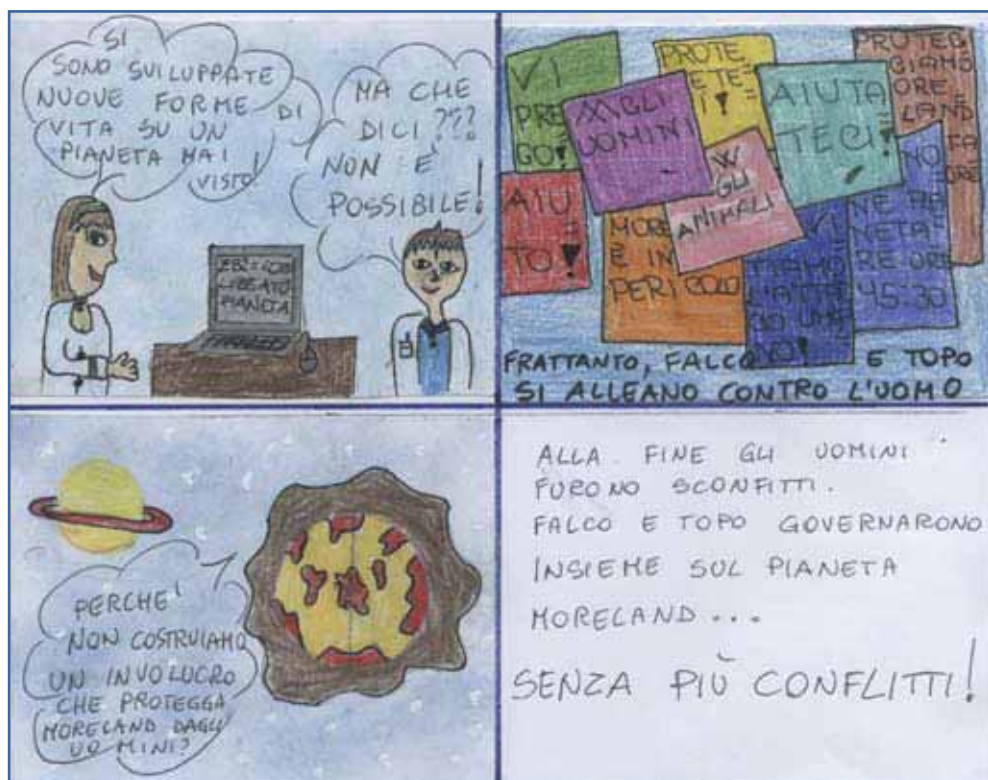 SI
SONO SVILUPPATE
NUOVE FORME DI
VITA SU UN
PIANETA MAI
VISTO!
MA CHE
DICI???
NON È
POSSIBILE!
LIBEATO
PIANETA
VI
PRE
GO!
GLI
UOMINI
PROTE
AIUTA
TECI!
PROTEG
GIAMO
ORE
LAND
AIU
TO!
MORE
È IN
PERICOLO
W
GLI
ANIMALI
VI
45:30
FRATTANTO, FALCO E TOPO
SI ALLEANO CONTRO L'UOMO
PERCHE'
NON COSTRUIAMO
UN INVOLUCRO
CHE PROTEGGA
MORELAND DAGLI
UOMINI?
ALLA FINE GLI UOMINI
FURONO SCONFITTI.
FALCO E TOPO GOVERNARONO
INSIEME SUL PIANETA
MORELAND...
SENZA PIÙ CONFLITTI!